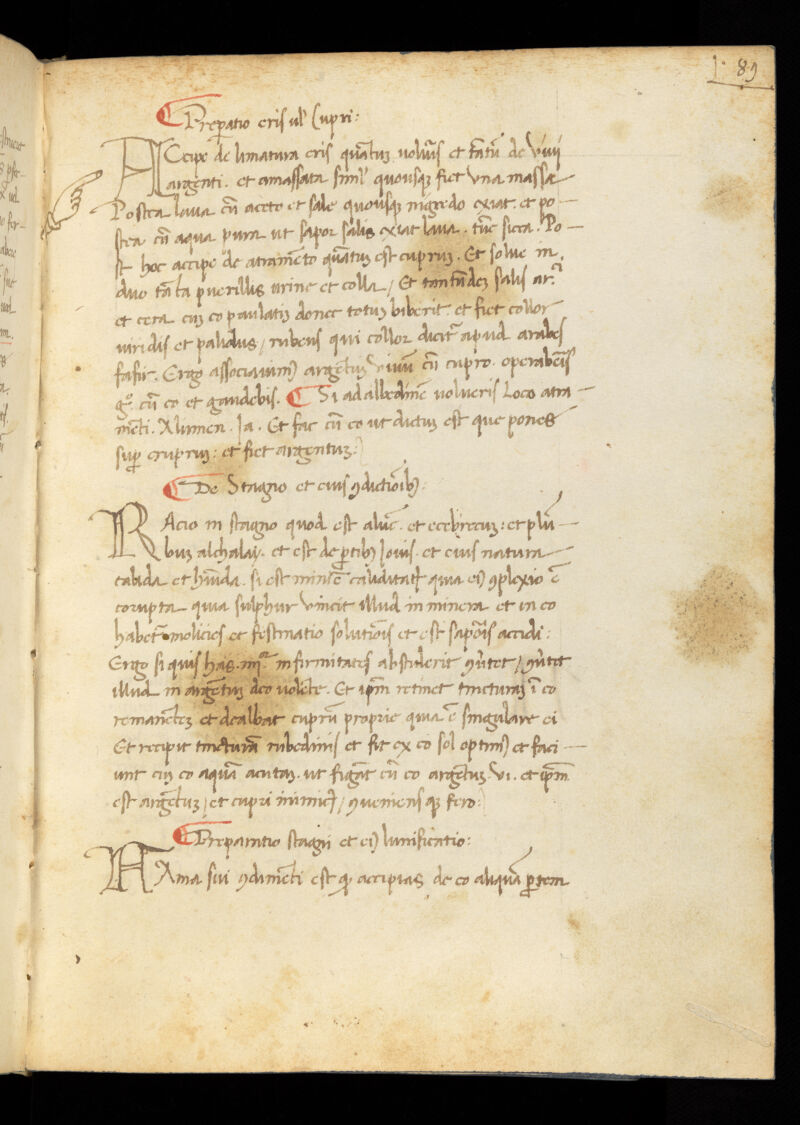 89
Preparatio eris ul' Cupri:
ACcipe de limatura eris quātum uolueris et tātū de viui
argenti. et amassata simul quousq fiet vna massa
Postea laua cū aceto et sale quousq nigredo exiat. et po-
stea cū aqua pura ut sapor salis exiat laua. tūc sicca. Po-
st hoc accipe de atramēto quātum est cuprum. Et solue in
duo tāta puerillis urine et colla / Et tantūdem salis ar.
et cera cum eo paulatim donec totum biberit et fiet collor
uiridis et palidus / rubens qui collor dicit apud arabes
fafir. Ergo associauim argētum viuū cū cupro. operaberis
g° cū eo et gaudebis. Si ad albedinē uolueris Loco atra-
mēti. Alumen. Ia. Et fac cū eo ut dictum est que pones
sup cruprum: et fiet argentum:
De Stagno et eius 9dictiōib:
RAcio in stagno quod est et plū-
bum alchalay. et est de ptib Iouis. et eius natura
calida et hūida. si est calliditate quia ei 9plexio ē
corupta quia sulphur vincit illud in minera et in eo
habet molicies et festinatio solutiōis et est
Ergo si quis has .iiij. infirmitates abstulerit
illud in argētum deo volēte. Et ipm retinet tincturam ī eo
remanētem et dealbat cuprū proprie quia ē singulare ei
Et recipit tincturā rubedinis et fit ex eo sol optim et faci-
unt cum eo aquā acutam. ut figāt cū eo argētum. vi. et ipm
est argētum / et cupri inimic / 9ueniens q fero:
Preparatio stagni et ei lunificatio:
HAma sui 9dimēti est q accipias de eo aliquā ptem